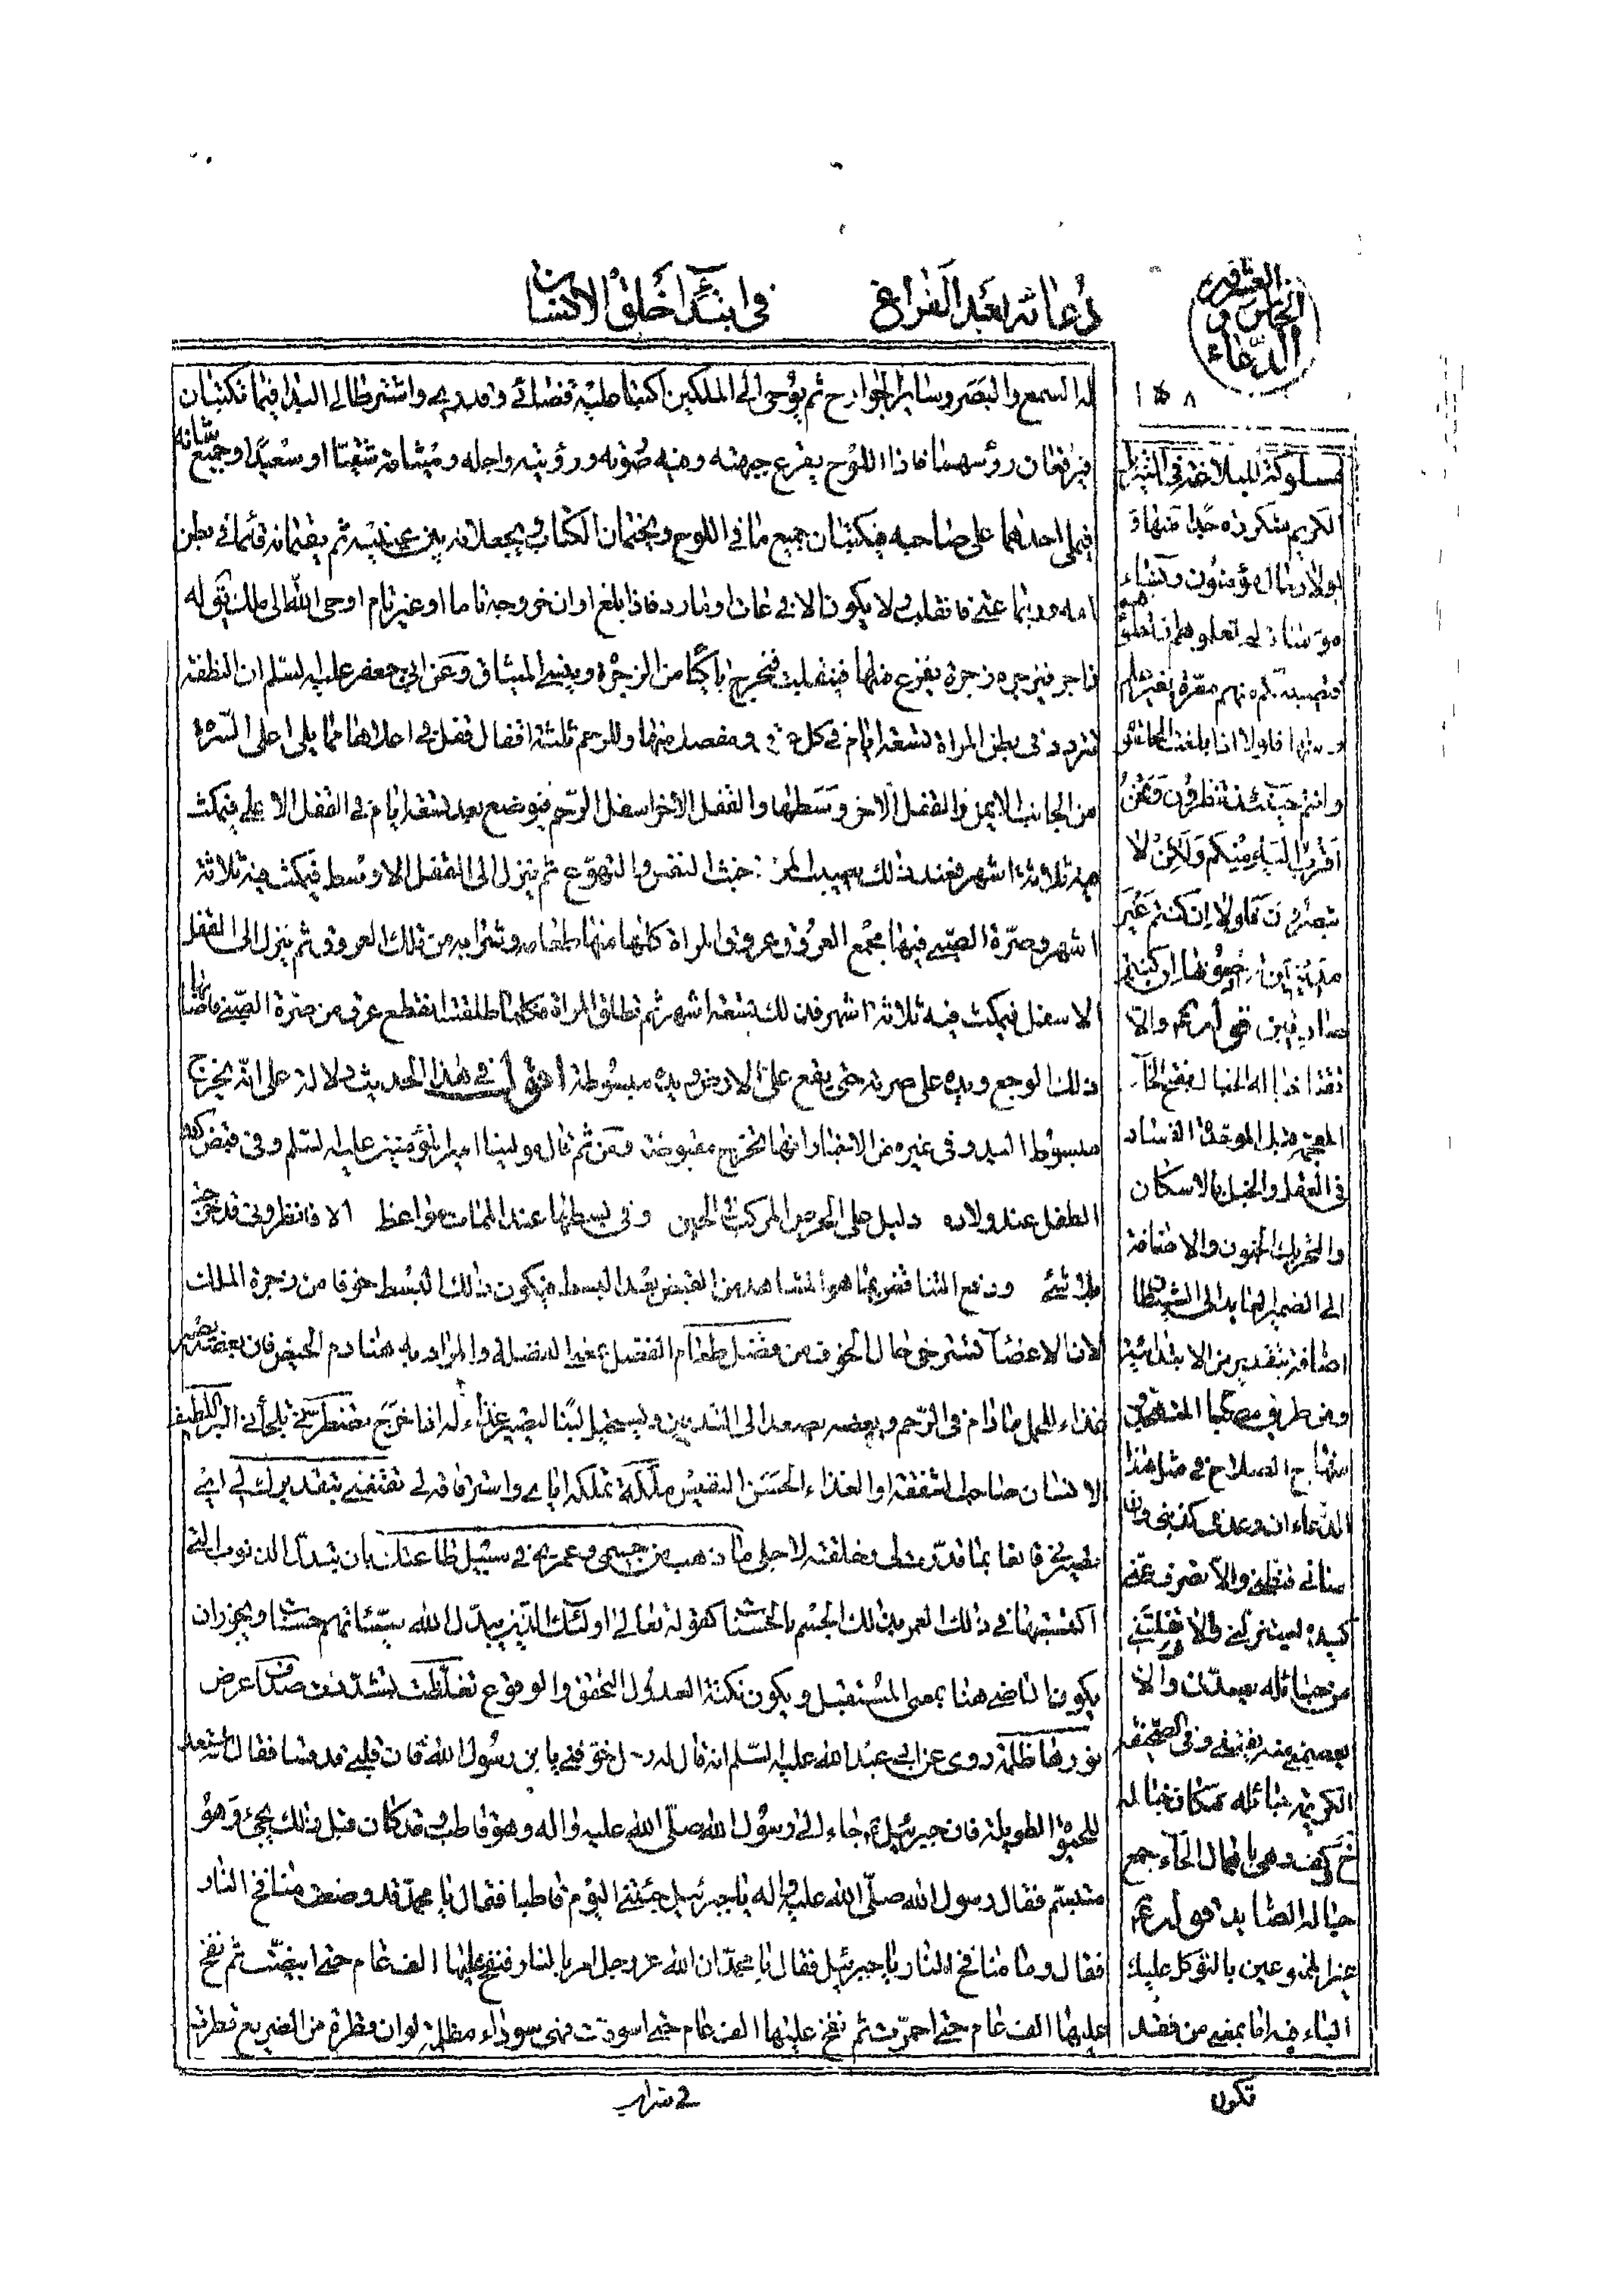 دعائه بعد الفراغ في ابتداء خلق الانسان
الدعاء الخامس و العشرون
له السمع والبصر وساير الجوارح ثم يوحي الى الملكين اكتبا عليه قضائي وقدري واشترطا لي البدا فيما تكتبان
فيرفعان رؤسهما فاذا اللوح يقرع جبهته وفيه صورته ورؤيته واجله وميثاقه شقيا او سعيدا وجميع شانه
فيملي احدهما على صاحبه فيكتبان جميع ما في اللوح ويختمان الكتاب ويجعلانه بين عينيه ثم يقيمانه قائما في بطن
امه وربما عتى فانقلب ولا يكون الا في عات او مارد فاذا بلغ اوان خروجه تاما او غير تام اوحى الله الى ملك يقول له
زاجر فيزجره زجرة يفزع منها فينقلب فيخرج باكيا من الزجرة وينسى الميثاق وعن ابي جعفر عليه السلام ان النطفة
تتردد في بطن المراة تسعة ايام في كل عرق ومفصل منها وللرحم ثلثة اقفال قفل في اعلاها مما يلي اعلى السرة
من الجانب الايمن والقفل الاخر وسطها والقفل الاخر اسفل الرحم فيوضع بعد تسعة ايام في القفل الاعلى فيمكث
فيه ثلاثة اشهر فعند ذلك يصيب المراة خبث النفس والتهوع ثم ينزل الى القفل الاوسط فيمكث فيه ثلاثة
اشهر وصرة الصبي فيها مجمع العروق وعروق المراة كلها منها طعامه وشرابه من تلك العروق ثم ينزل الى القفل
الاسفل فيمكث فيه ثلاثة اشهر فذلك تسعة اشهر ثم تطلق المراة فكلما طلقت انقطع عرق من صرة الصبي فاصابها
ذلك الوجع ويده على صرته حتى يقع على الارض ويده مبسوطة اقول في هذا الحديث دلالة على انه يخرج
مبسوط اليد وفي غيره من الاخبار انها تخرج مقبوضة ومن ثم قال مولينا امير المؤمنين عليه السلم وفي قبض كف
الطفل عند ولاده دليل على الحرص المركب في الحي وفي بسطها عند الممات مواعظ الا فانظروني قد خرجت
بلا شئ ودفع التنافي بما هو المشاهد من القبض بعد البسط فيكون ذلك البسط خوفا من زجرة الملك
لان الاعضاء تسترخي حال الخوف من فضل طعام الفضل بمعنى الفضلة والمراد به هنا دم الحيض فان بعضه يصير
غذاء للحمل ما دام في الرحم وبعضه يصعد الى الثديين ويستحيل لبنا ليصير غذاء له اذا خرج مضطر تلجأني البر اللطيف
لانسان صاحب الشفقة او الغذاء الحسن النفيس ملكة تملكه اياي واسترقاقه لي تقتضيه بتقديرك لي اني
بما قدرت لي وخلقته لاجلي ما ذهب من جسمي وعمري في سبيل طاعتك بان تبدل الذنوب التي
اكتسبتها في ذلك العمر بذلك الجسم بالحسنات كقوله تعالى اولئك الذين يبدل الله سيئاتهم حسنات ويجوز ان
يكون الماضي هنا بمعنى المستقبل ويكون نكتة العدول التحقق والوقوع تغلظت تشددت صدف اعرض
نورها ظلمة روى عن ابي عبد الله عليه السلم انه قال له رجل خوفني يا بن رسول الله فان قلبي قد قسا فقال استعد
للحيوة الطويلة فان جبرئيل جاء الى رسول الله صلى الله عليه واله وهو قاطب وقد كان قبل ذلك يجئ وهو
متبسم فقال رسول الله صلى الله عليه واله يا جبرئيل جئتني اليوم قاطبا فقال يا محمد قد وضعت منافخ النار
فقال وما منافخ النار يا جبرئيل فقال يا محمد ان الله عز وجل امر بالنار فنفخ عليها الف عام حتى ابيضت ثم نفخ
عليها الف عام حتى احمرت ثم نفخ عليها الف عام حتى اسودت فهي سوداء مظلمة لو ان قطرة من الضريع قطرت
في شراب
١٥٨
مسلوكة للبلاغة في التنزيل
الكريم متكررة جدا منها
لولا رجال مؤمنون ونساء
مؤمنات لم تعلموهم ان تطؤهم
فتصيبكم منهم معرة بغير علم
ومنها فلولا اذا بلغت الحلقوم
وانتم حينئذ تنظرون ونحن
اقرب اليه منكم ولكن لا
تبصرون فلولا ان كنتم غير
مدينين ترجعونها ان كنتم
صادقين قوله والا
فقد اخباله الخبال بفتح الخاء
المعجمة قبل الموحدة الفساد
في العقل والخبل بالاسكان
والتحريك الجنون والاضافة
الى الضمير العايد الى الشيطان
اضافة بتقدير من الابتدائية
ومن طريق
الصلاح في مثل هذا
الدعاء ان وعدني كذبني وان
مناني قنطني والا تصرف عني
كيده يستزلني والا تفلتني
من حبائله يصدني والا
تعصمني منه يفتني وفي الصحيفة
الكريمة حبائله مكان خباله
خ كف وهي باهمال الحاء جمع
حبالة الصايد قوله
عزايمي وعين بالتوكل عليك
الباء هنا بمعنى من فقد
تكون